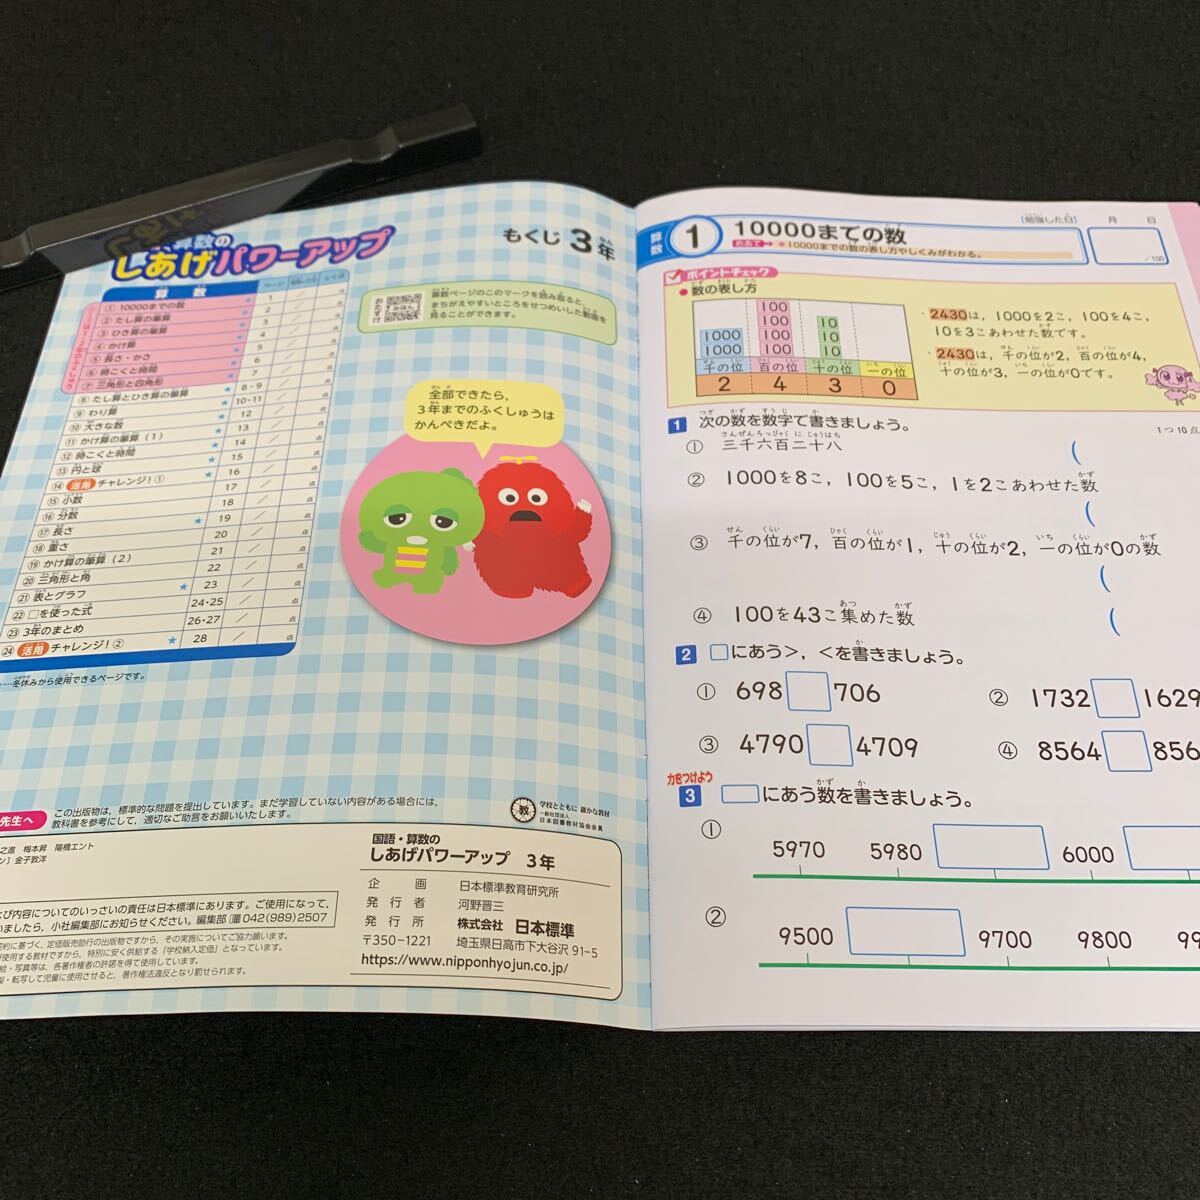 算数の
しあげパワーアップ
もくじ 3年
算数
ページ
① 10000までの数 ★ 1
② たし算の筆算 ★ 2
③ ひき算の筆算 ★ 3
④ かけ算 ★ 4
⑤ 長さ・かさ ★ 5
⑥ 時こくと時間 ★ 6
⑦ 三角形と四角形 ★ 7
⑧ たし算とひき算の筆算 ★ 8・9
⑨ わり算 ★ 10・11
⑩ 大きな数 12
⑪ かけ算の筆算(1) ★ 13
⑫ 時こくと時間 ★ 14
⑬ 円と球 ★ 15
⑭ 活用 チャレンジ!① ★ 16
⑮ 小数 17
⑯ 分数 18
⑰ 長さ ★ 19
⑱ 重さ 20
⑲ かけ算の筆算(2) 21
⑳ 三角形と角 22
㉑ 表とグラフ ★ 23
㉒ □を使った式 24・25
㉓ 3年のまとめ 26・27
㉔ 活用 チャレンジ!② ★ 28
…冬休みから使用できるページです。
おたすけ
算数ページのこのマークを読み取ると,
まちがえやすいところをせつめいした動画を
見ることができます。
全部できたら,
3年までのふくしゅうは
かんぺきだよ。
先生へ
この出版物は、標準的な問題を提出しています。まだ学習していない内容がある場合には,
教科書を参考にして,適切なご助言をお願いいたします。
教
学校とともに 確かな教材
一般社団法人
日本図書教材協会会員
之進 梅本昇 陽橋エント
ン〕金子敦洋
よび内容についてのいっさいの責任は日本標準にあります。ご使用になって,
いましたら,小社編集部にお知らせください。編集部 042(989)2507
国語・算数の
しあげパワーアップ 3年
企画 日本標準教育研究所
発行者 河野晋三
発行所 株式会社 日本標準
〒350-1221 埼玉県日高市下大谷沢 91-5
https://www.nipponhyojun.co.jp/
算数
1
10000までの数
めあて
10000までの数の表し方やしくみがわかる。
[勉強した日] 月 日
/100
ポイントチェック
●数の表し方
1000
1000
100
100
100
100
10
10
10
千の位 百の位 十の位 一の位
2 4 3 0
・2430は,1000を2こ,100を4こ,
10を3こあわせた数です。
・2430は,千の位が2,百の位が4,
十の位が3,一の位が0です。
1 次の数を数字で書きましょう。
1つ10点
① 三千六百二十八 (
② 1000を8こ,100を5こ,1を2こあわせた数
(
③ 千の位が7,百の位が1,十の位が2,一の位が0の数
(
④ 100を43こ集めた数 (
2 □にあう>,<を書きましょう。
① 698 □ 706
② 1732 □ 1629
③ 4790 □ 4709
④ 8564 □ 856
力をつけよう
3 □にあう数を書きましょう。
①
5970 5980 6000
②
9500 9700 9800 99